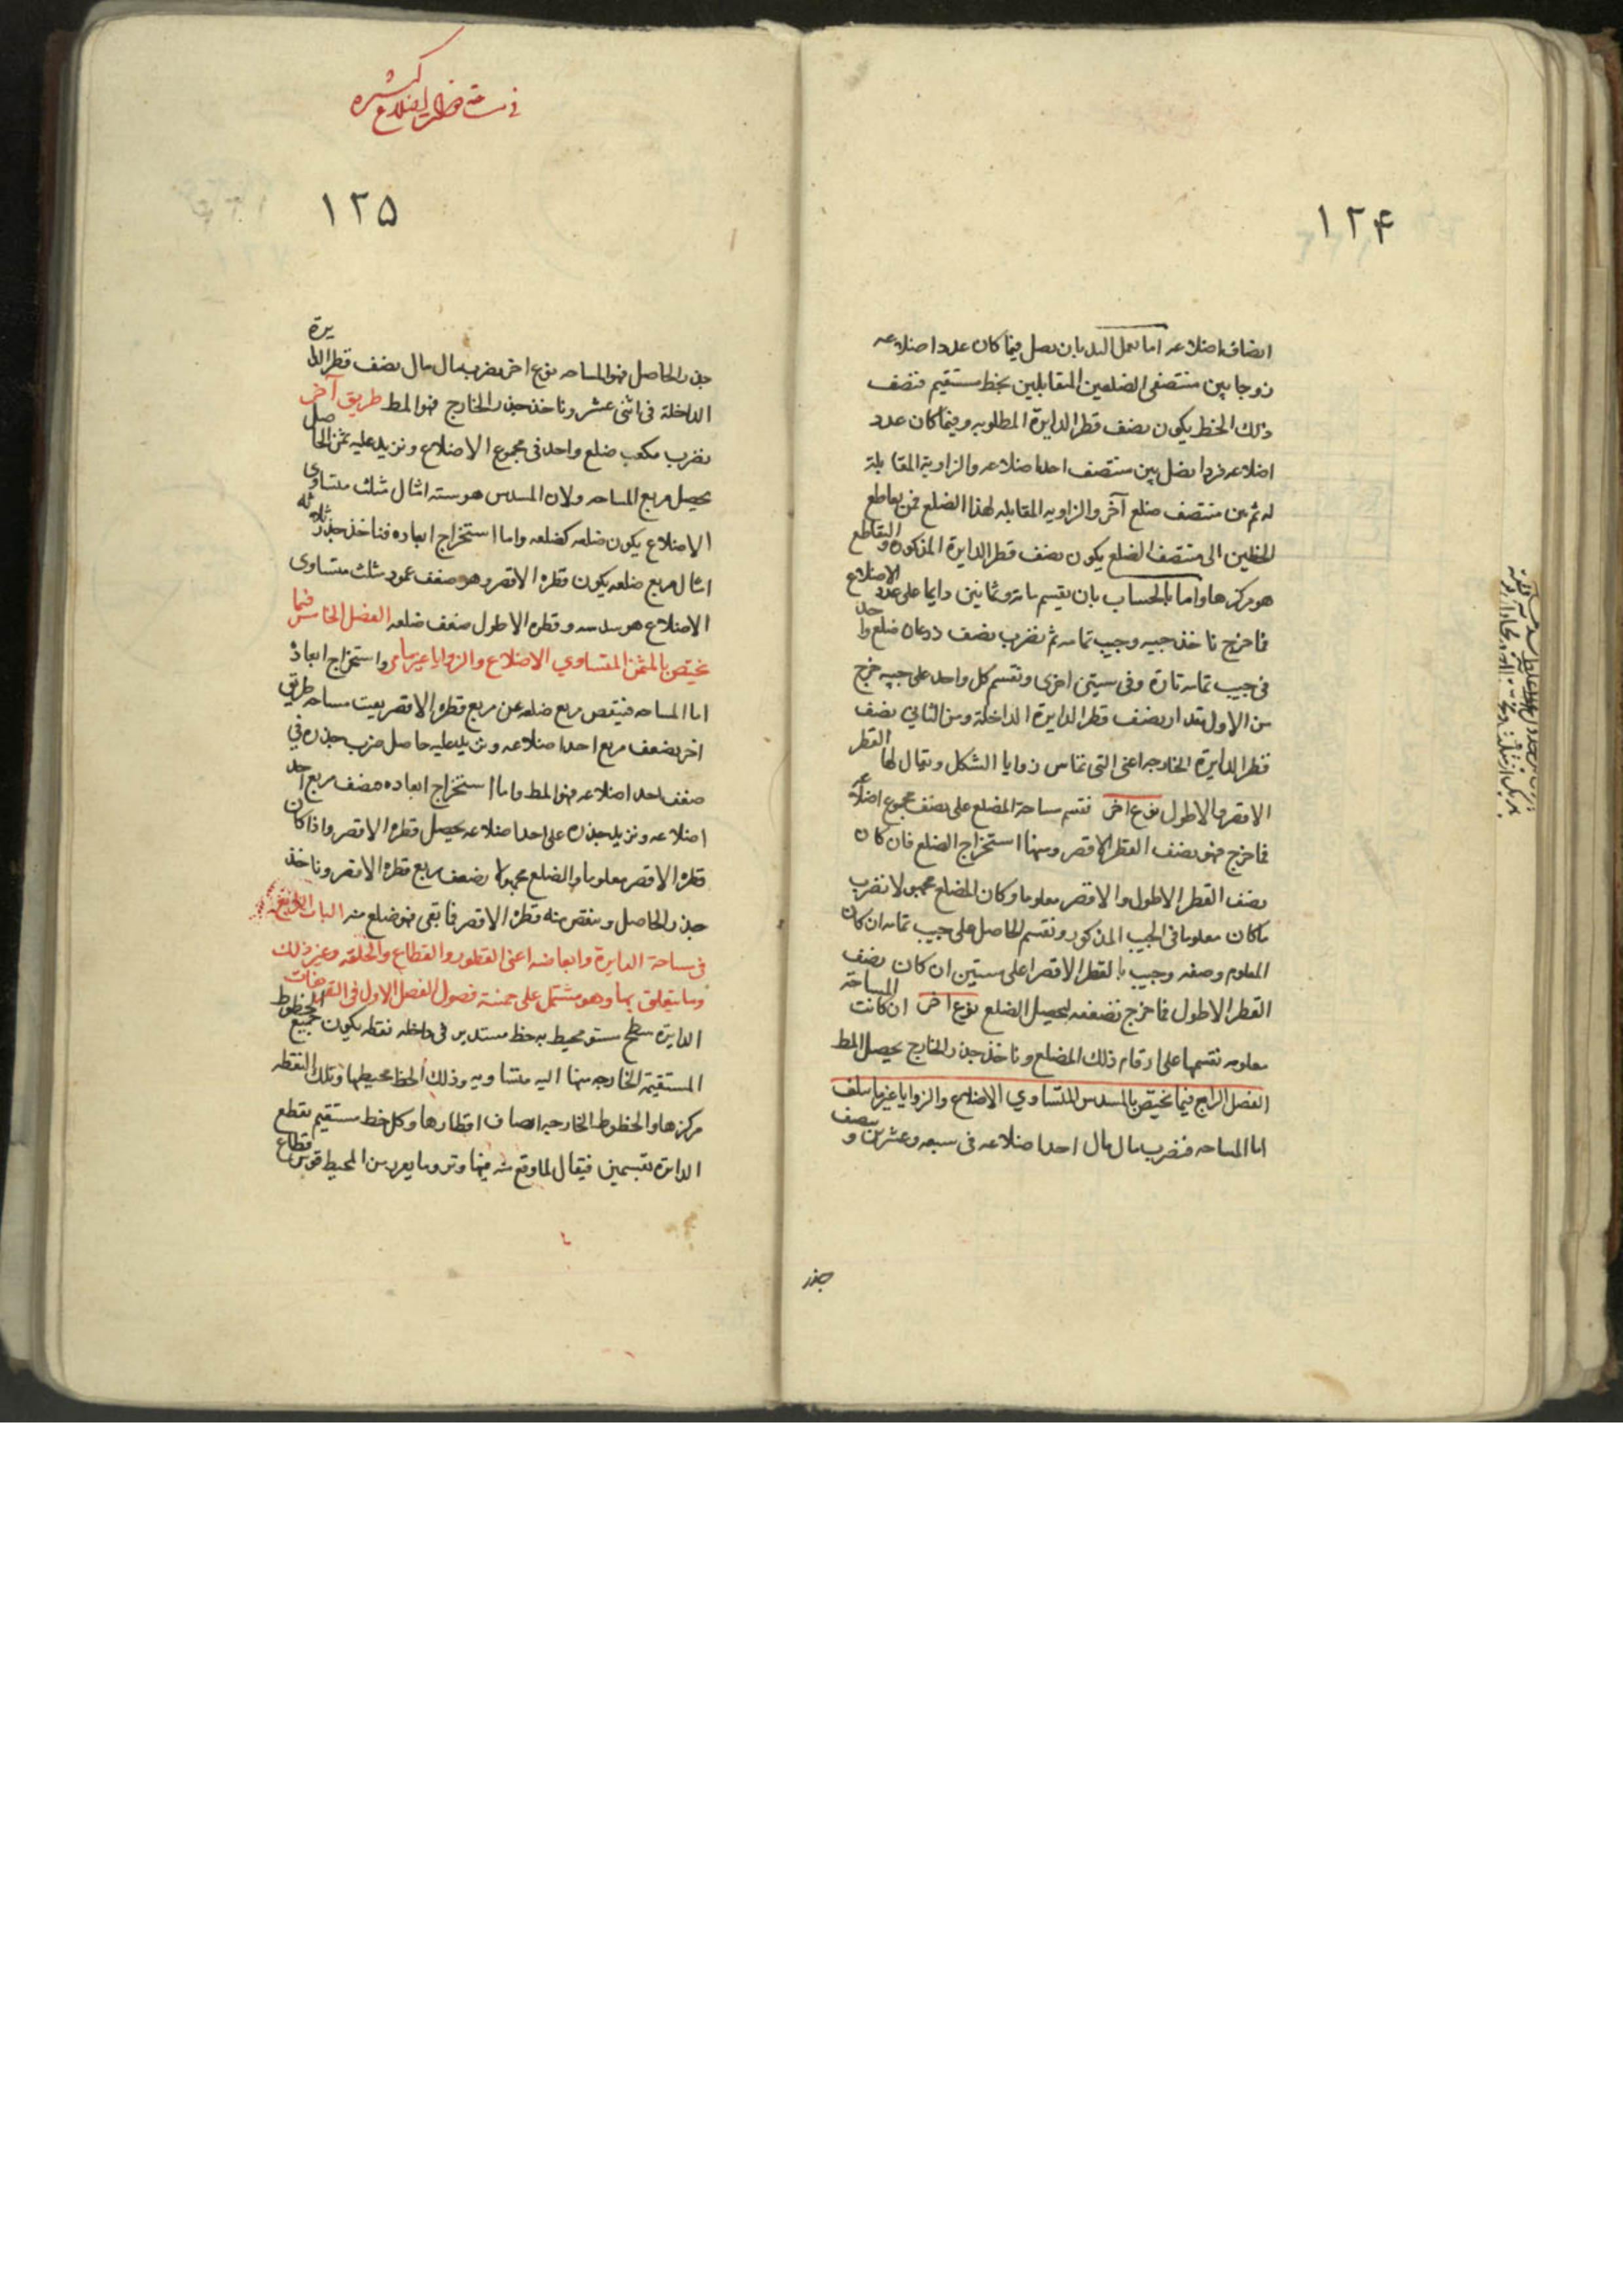 ١٢۴
انصاف اضلاعه اما بعمل اليد بان نصل فيما كان عدد اضلاعه
زوجا بين منتصفى الضلعين المتقابلين بخط مستقيم فنصف
ذلك الخط يكون نصف قطر الدايرة المطلوبه وفيما كان عدد
اضلاعه فردا نصل بين منتصف احد اضلاعه والزاوية المقابلة
له ثم بين منتصف ضلع آخر والزاويه المقابله لهذا الضلع فمن تقاطع
الخطين الى منتصف الضلع يكون نصف قطر الدايرة المذكورة والتقاطع
هو مركزها واما بالحساب بان نقسم ماة وثمانين دايما على عدد الاضلاع
فما خرج ناخذ جيبه وجيب تمامه ثم نضرب نصف ضلع واحد
فى جيب تمامه تارة وفى ستين اخرى ونقسم كل واحد على جيبه خرج
من الاول مقدار نصف قطر الدايرة الداخلة ومن الثاني نصف
قطر الدايرة الخارجه اعنى التى تماس زوايا الشكل ويقال لها القطر
الاقصر والاطول نوع اخر نقسم مساحة المضلع على نصف مجموع اضلاعه
فما خرج فهو نصف القطر الاقصر ومنها استخراج الضلع فان كان
نصف القطر الاطول والاقصر معلوما وكان الضلع مجهولا نضرب
ما كان معلوما فى الجيب المذكور ونقسم الحاصل على جيب تمامه ان كان
المعلوم نصف القطر الاقصر او على ستين ان كان نصف
القطر الاطول فما خرج نضعفه ليحصل الضلع نوع اخر ان كانت المساحة
معلومه نقسمها على ارقام ذلك المضلع وناخذ جذر الخارج يحصل المط
الفصل الرابع فيما يختص بالمسدس المتساوي الاضلاع والزوايا غير ما سلف
اما المساحه فنضرب مال مال احد اضلاعه فى سبعه وعشرين ونصف
جذر
١٢۵
جذر الحاصل فهو المساحه نوع اخر نضرب مال مال نصف قطر الدايرة
الداخلة فى اثنى عشر وناخذ جذر الخارج فهو المط طريق آخر
نضرب مكعب ضلع واحد فى مجموع الاضلاع ونزيد عليه ثمن الحاصل
يحصل مربع المساحه ولان المسدس هو سته امثال مثلث متساوى
الاضلاع يكون ضلعه كضلعه واما استخراج ابعاده فناخذ جذر ثلاثه
امثال مربع ضلعه يكون قطره الاقصر وهو ضعف عمود مثلث متساوى
الاضلاع هو سدسه وقطره الاطول ضعف ضلعه الفصل الخامس فيما
يختص بالمثمن المتساوي الاضلاع والزوايا غير ما مر واستخراج ابعاده
اما المساحه فينقص مربع ضلعه عن مربع قطره الاقصر بقيت مساحه طريق
اخر نضعف مربع احد اضلاعه ونزيد عليه حاصل ضرب جذره في
ضعف احد اضلاعه فهو المط واما استخراج ابعاده فنضعف مربع احد
اضلاعه ونزيد جذره على احد اضلاعه يحصل قطره الاقصر واذا كان
قطره الاقصر معلوما والضلع مجهولا نضعف مربع قطره الاقصر وناخذ
جذر الحاصل وننقص منه قطره الاقصر فما بقى فهو ضلع منه الباب الرابع
فى مساحة الدايرة وابعاضها اعنى القطور والقطاع والحلقه وغير ذلك
وما يتعلق بها وهو مشتمل على خمسة فصول الفصل الاول فى التعريفات
الدايرة سطح مستو يحيط به خط مستدير فى داخله نقطه يكون جميع الخطوط
المستقيمة الخارجه منها اليه متساويه وذلك الخط محيطها وتلك النقطه
مركزها والخطوط الخارجه انصاف اقطارها وكل خط مستقيم يقطع
الدايرة بقسمين فيقال لما وقع منه فيها وتر وما يفرز من المحيط قوس